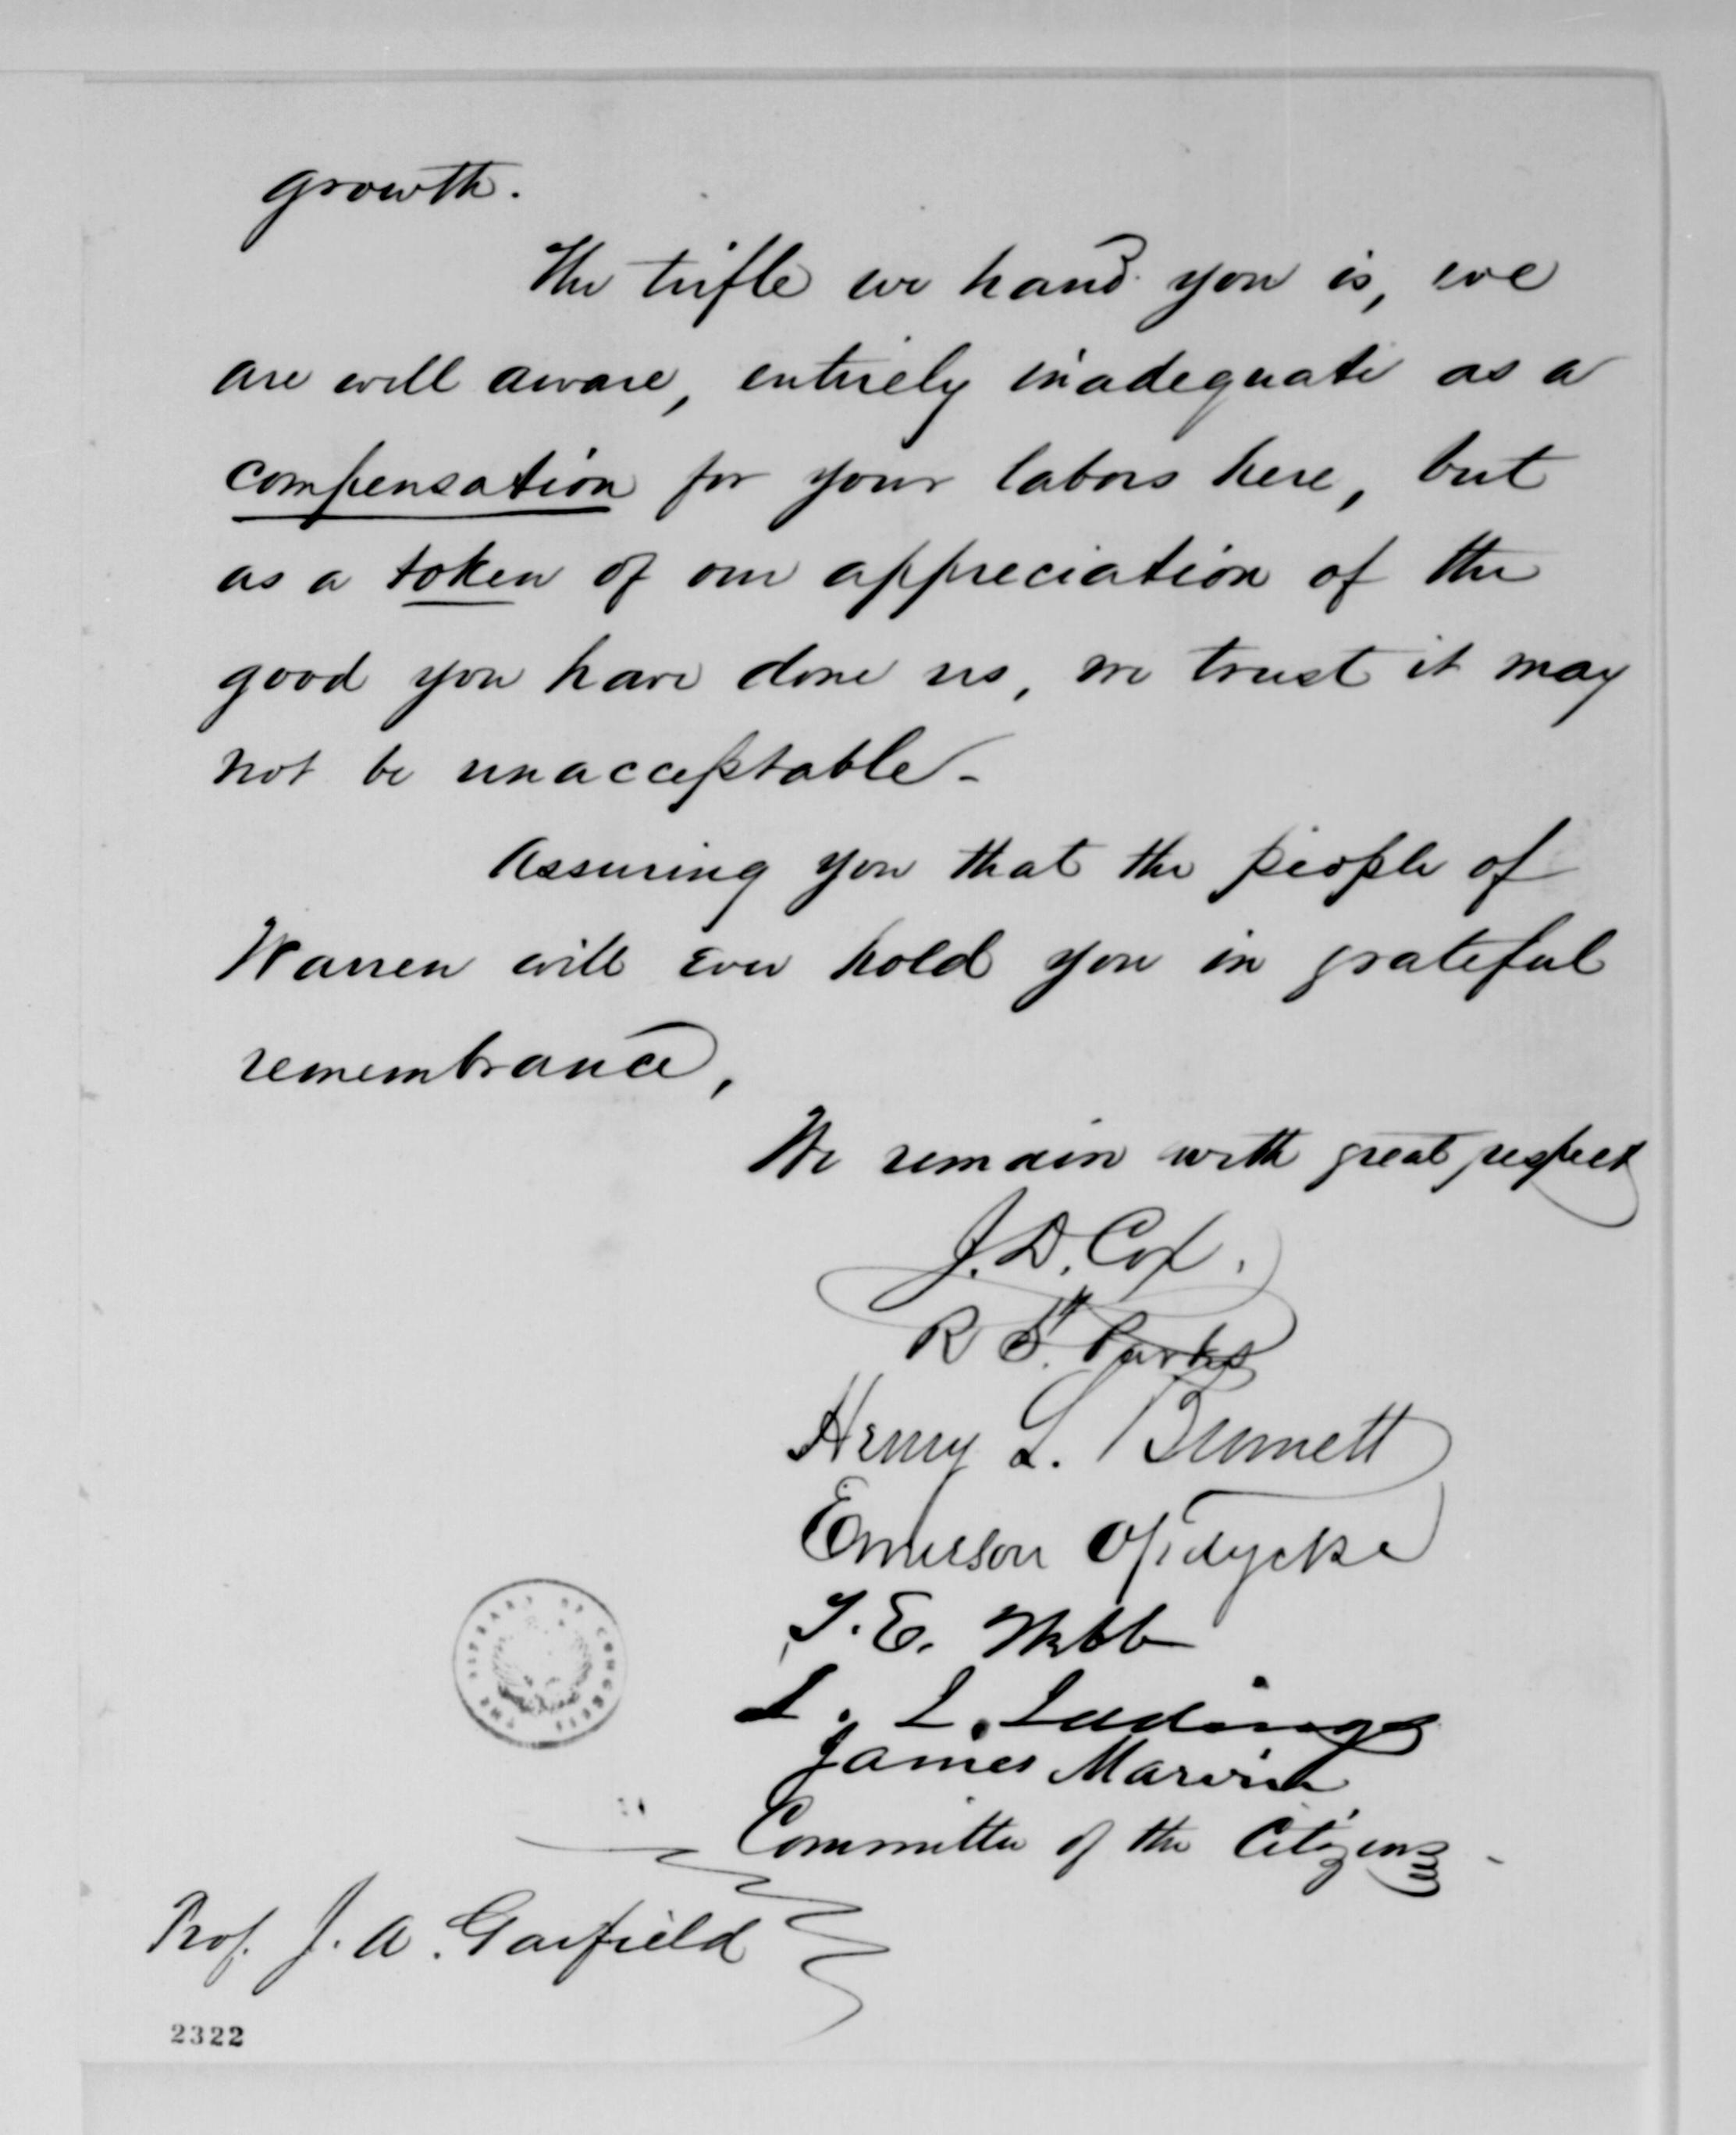 growth.
The trifle we hand you is, we
are well aware, entirely inadequate as a
compensation for your labors here, but
as a token of our appreciation of the
good you have done us, we trust it may
not be unacceptable -
Assuring you that the people of
Warren will ever hold you in grateful
remembrance,
We remain with great respect
J. D. Cox.
R S. Parks
Henry L. Burnett
Emerson Opdycke
T. E. Webb
L. L. Iddings
James Marvin
Committee of the Citizens -
THE LIBRARY OF CONGRESS
Prof. J. A. Garfield
2322